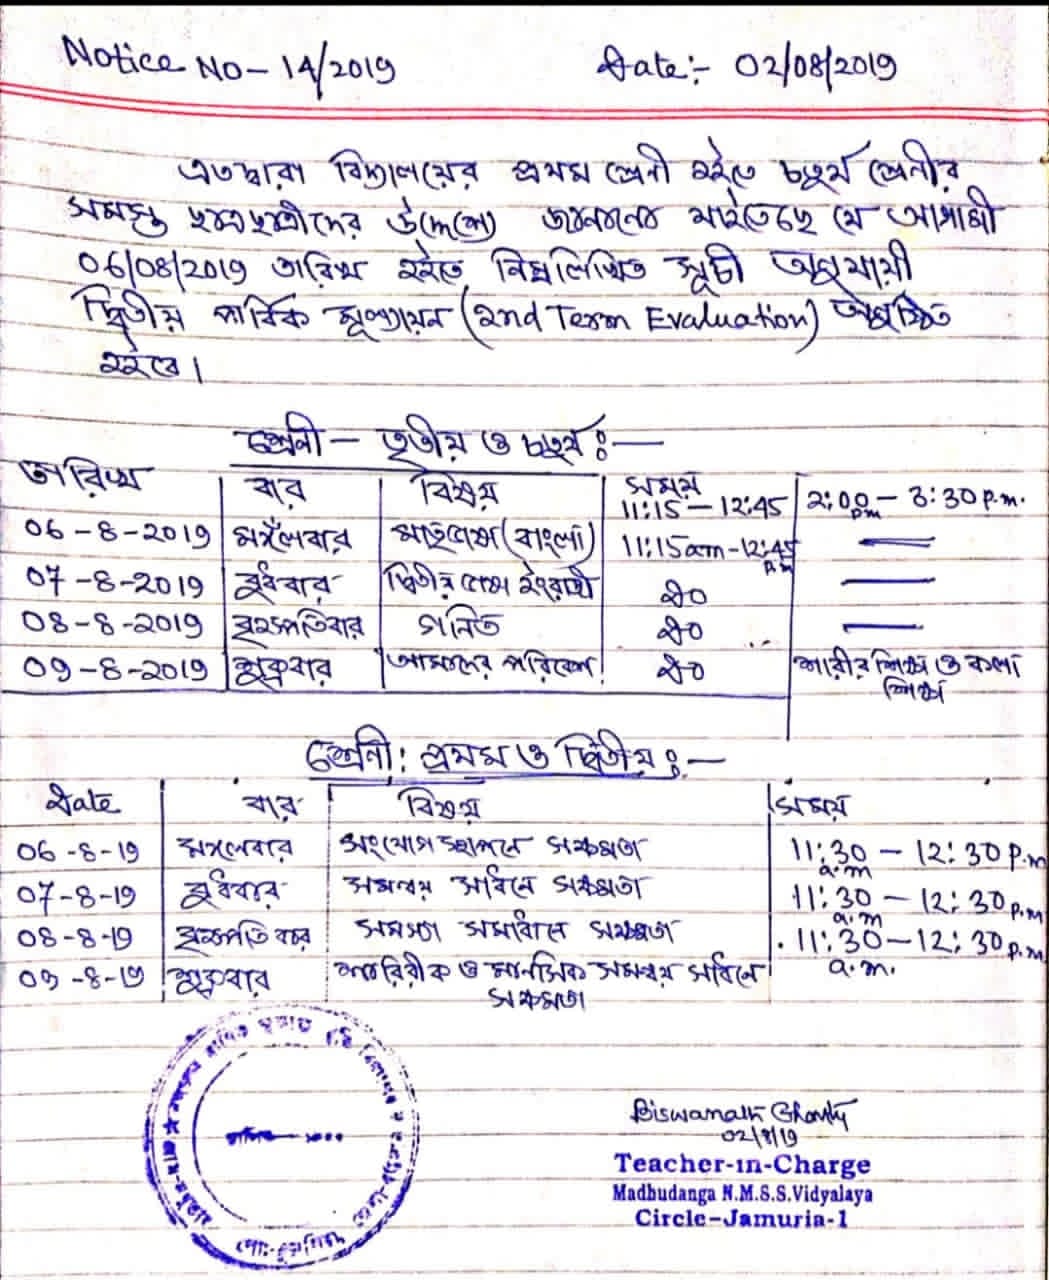 Notice No - 14/2019 Date:- 02/08/2019
এতদ্বারা বিদ্যালয়ের প্রথম শ্রেনী হইতে চতুর্থ শ্রেনীর
সমস্ত ছাত্রছাত্রীদের উদ্দেশ্যে জানানো যাইতেছে যে আগামী
06/08/2019 তারিখ হইতে নিম্নলিখিত সূচী অনুযায়ী
দ্বিতীয় পার্বিক মূল্যায়ন (2nd Term Evaluation) অনুষ্ঠিত
হইবে।
শ্রেনী - তৃতীয় ও চতুর্থ ঃ—
তারিখ বার বিষয় সময় 11:15 - 12:45 2:00 pm - 3:30 p.m.
06-8-2019 মঙ্গলবার মাতৃভাষা (বাংলা) 11:15am - 12:45 p.m —
07-8-2019 বুধবার দ্বিতীয় ভাষা ইংরাজী do —
08-8-2019 বৃহস্পতিবার গনিত do —
09-8-2019 শুক্রবার আমাদের পরিবেশ do শারীর শিক্ষা ও কলা
শিক্ষা
শ্রেনী: প্রথম ও দ্বিতীয় ঃ—
Date বার বিষয় সময়
06-8-19 মঙ্গলবার সংযোগ স্থাপনে সক্ষমতা 11:30 a.m - 12:30 p.m
07-8-19 বুধবার সমন্বয় সাধনে সক্ষমতা 11:30 a.m - 12:30 p.m
08-8-19 বৃহস্পতি বার সমস্যা সমাধানে সক্ষমতা 11:30 a.m. - 12:30 p.m
09-8-19 শুক্রবার শারিরীক ও মানসিক সমন্বয় সাধনে
সক্ষমতা
Biswanath
02/8/19
Teacher-in-Charge
Madhudanga N.M.S.S.Vidyalaya
Circle-Jamuria-1